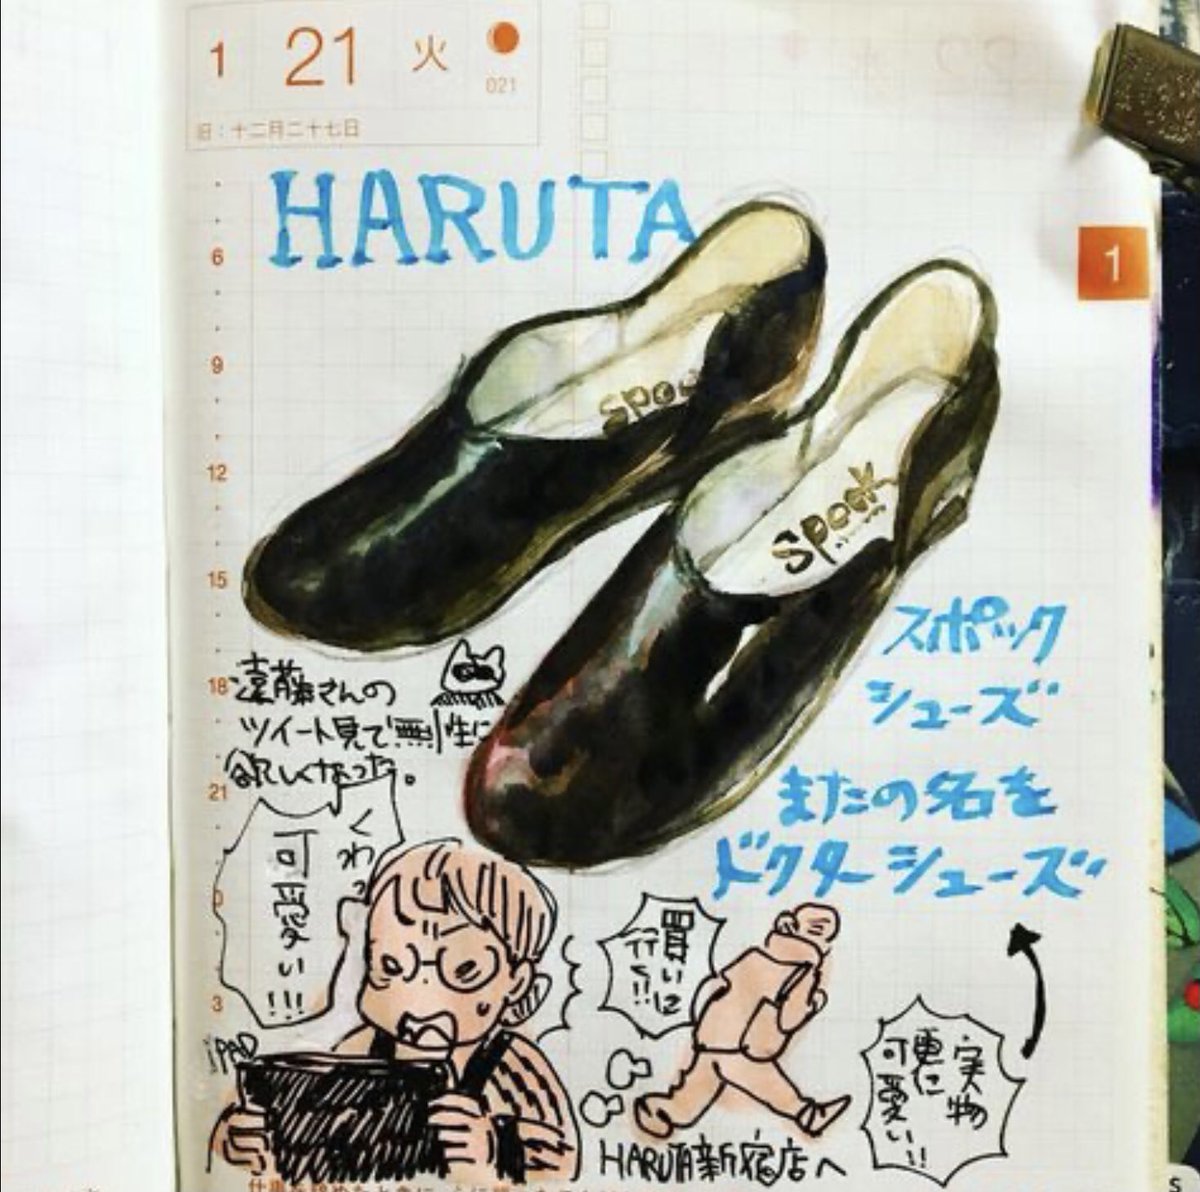 1 21 火
021
旧:十二月二十七日
HARUTA
6
9
12
15
18
21
3
1
spock
スポック
シューズ
またの名を
ドクターシューズ
遠藤さんの
ツイート見て無性に
欲しくなった。
くわっ
可愛い!!!
iPAD
買いに
行く!!
HARUTA新宿店へ
実物
更に
可愛い!!
S